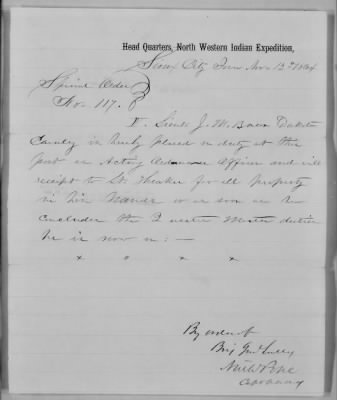 Head Quarters, North Western Indian Expedition,
Sioux City Iowa Nov 13th 1864
Special Order
No. 117.
I. Lieut J. M. Bacon Dakota
Cavalry is hereby placed on duty at this
post as Acting Ordnance Officer and will
receipt to Lt. for all property
in his hands as soon as he
concludes the Quarter Master duties
he is now on : —
x x x x
By order of
Brig Genl Sully
Pope